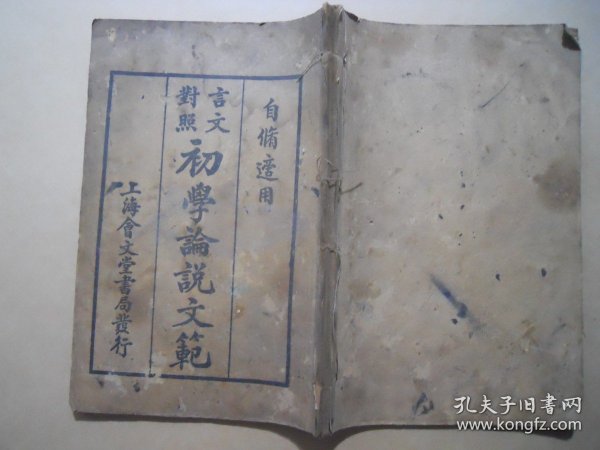 自脩適用
言文
對照
初學論説文範
上海會文堂書局發行
孔夫子旧书网
www.kongfz.com